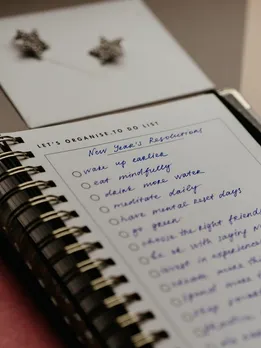 LET'S ORGANISE.TO DO LIST
New Year's Resolutions
wake up earlier
eat mindfully
drink more water
meditate daily
have mental reset days
go green
choose the right friends
be ok with saying
invest in experiences
more
spend more